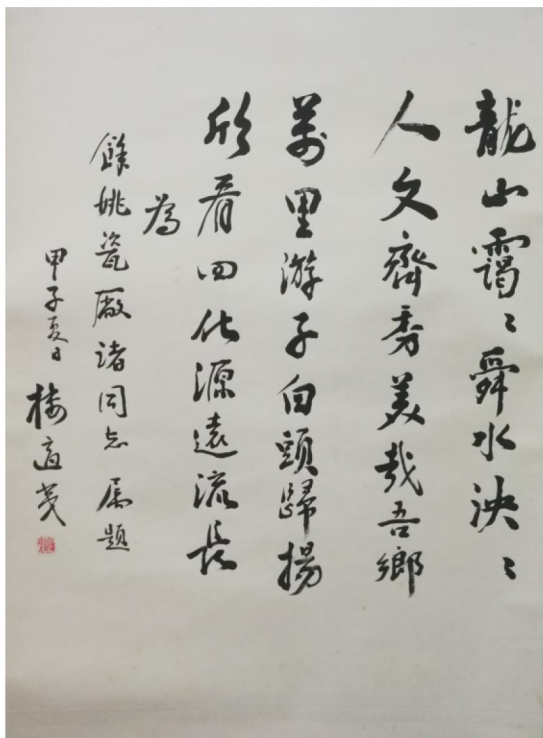 龍山靄〻舜水泱〻
人文齊秀美哉吾鄉
萬里游子白頭歸揚
欣看四化源遠流長
為
餘姚瓷廠諸同志屬題
甲子夏日
樓適夷